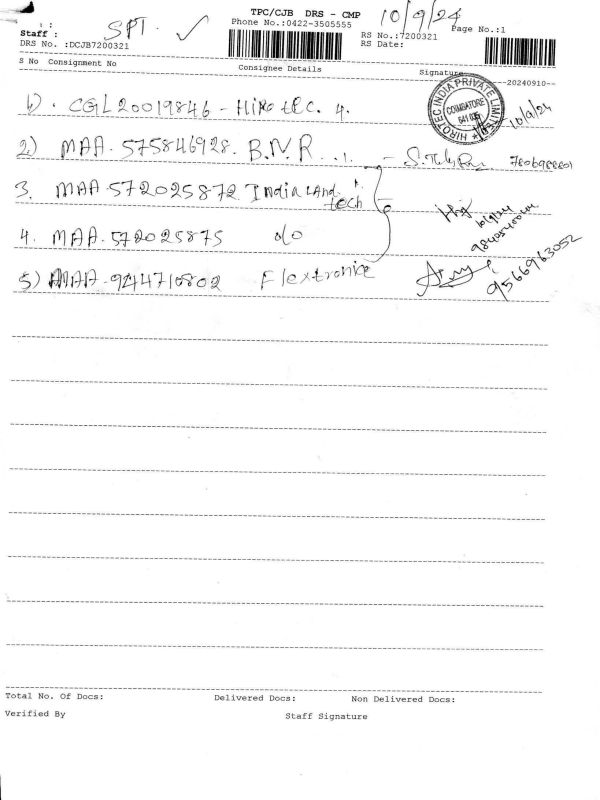 TPC/CJB DRS - CMP 10/9/24
Phone No.:0422-3505555 Page No.:1
Staff : SPT. RS No.:7200321
DRS No. :DCJB7200321 RS Date:
S No Consignment No Consignee Details Signature
20240910
1). CGL20019846 - Hirotec. 4. 10/9/24
HIROTEC INDIA PRIVATE LIMITED
COIMBATORE
2) MAA. 575846928. B.N.R
3. MAA 572025872 India Land
tech
4. MAA. 572025875 d/o 10/9/24
5) MAA. 944710802 Flextronice 9566963052
Total No. Of Docs: Delivered Docs: Non Delivered Docs:
Verified By Staff Signature